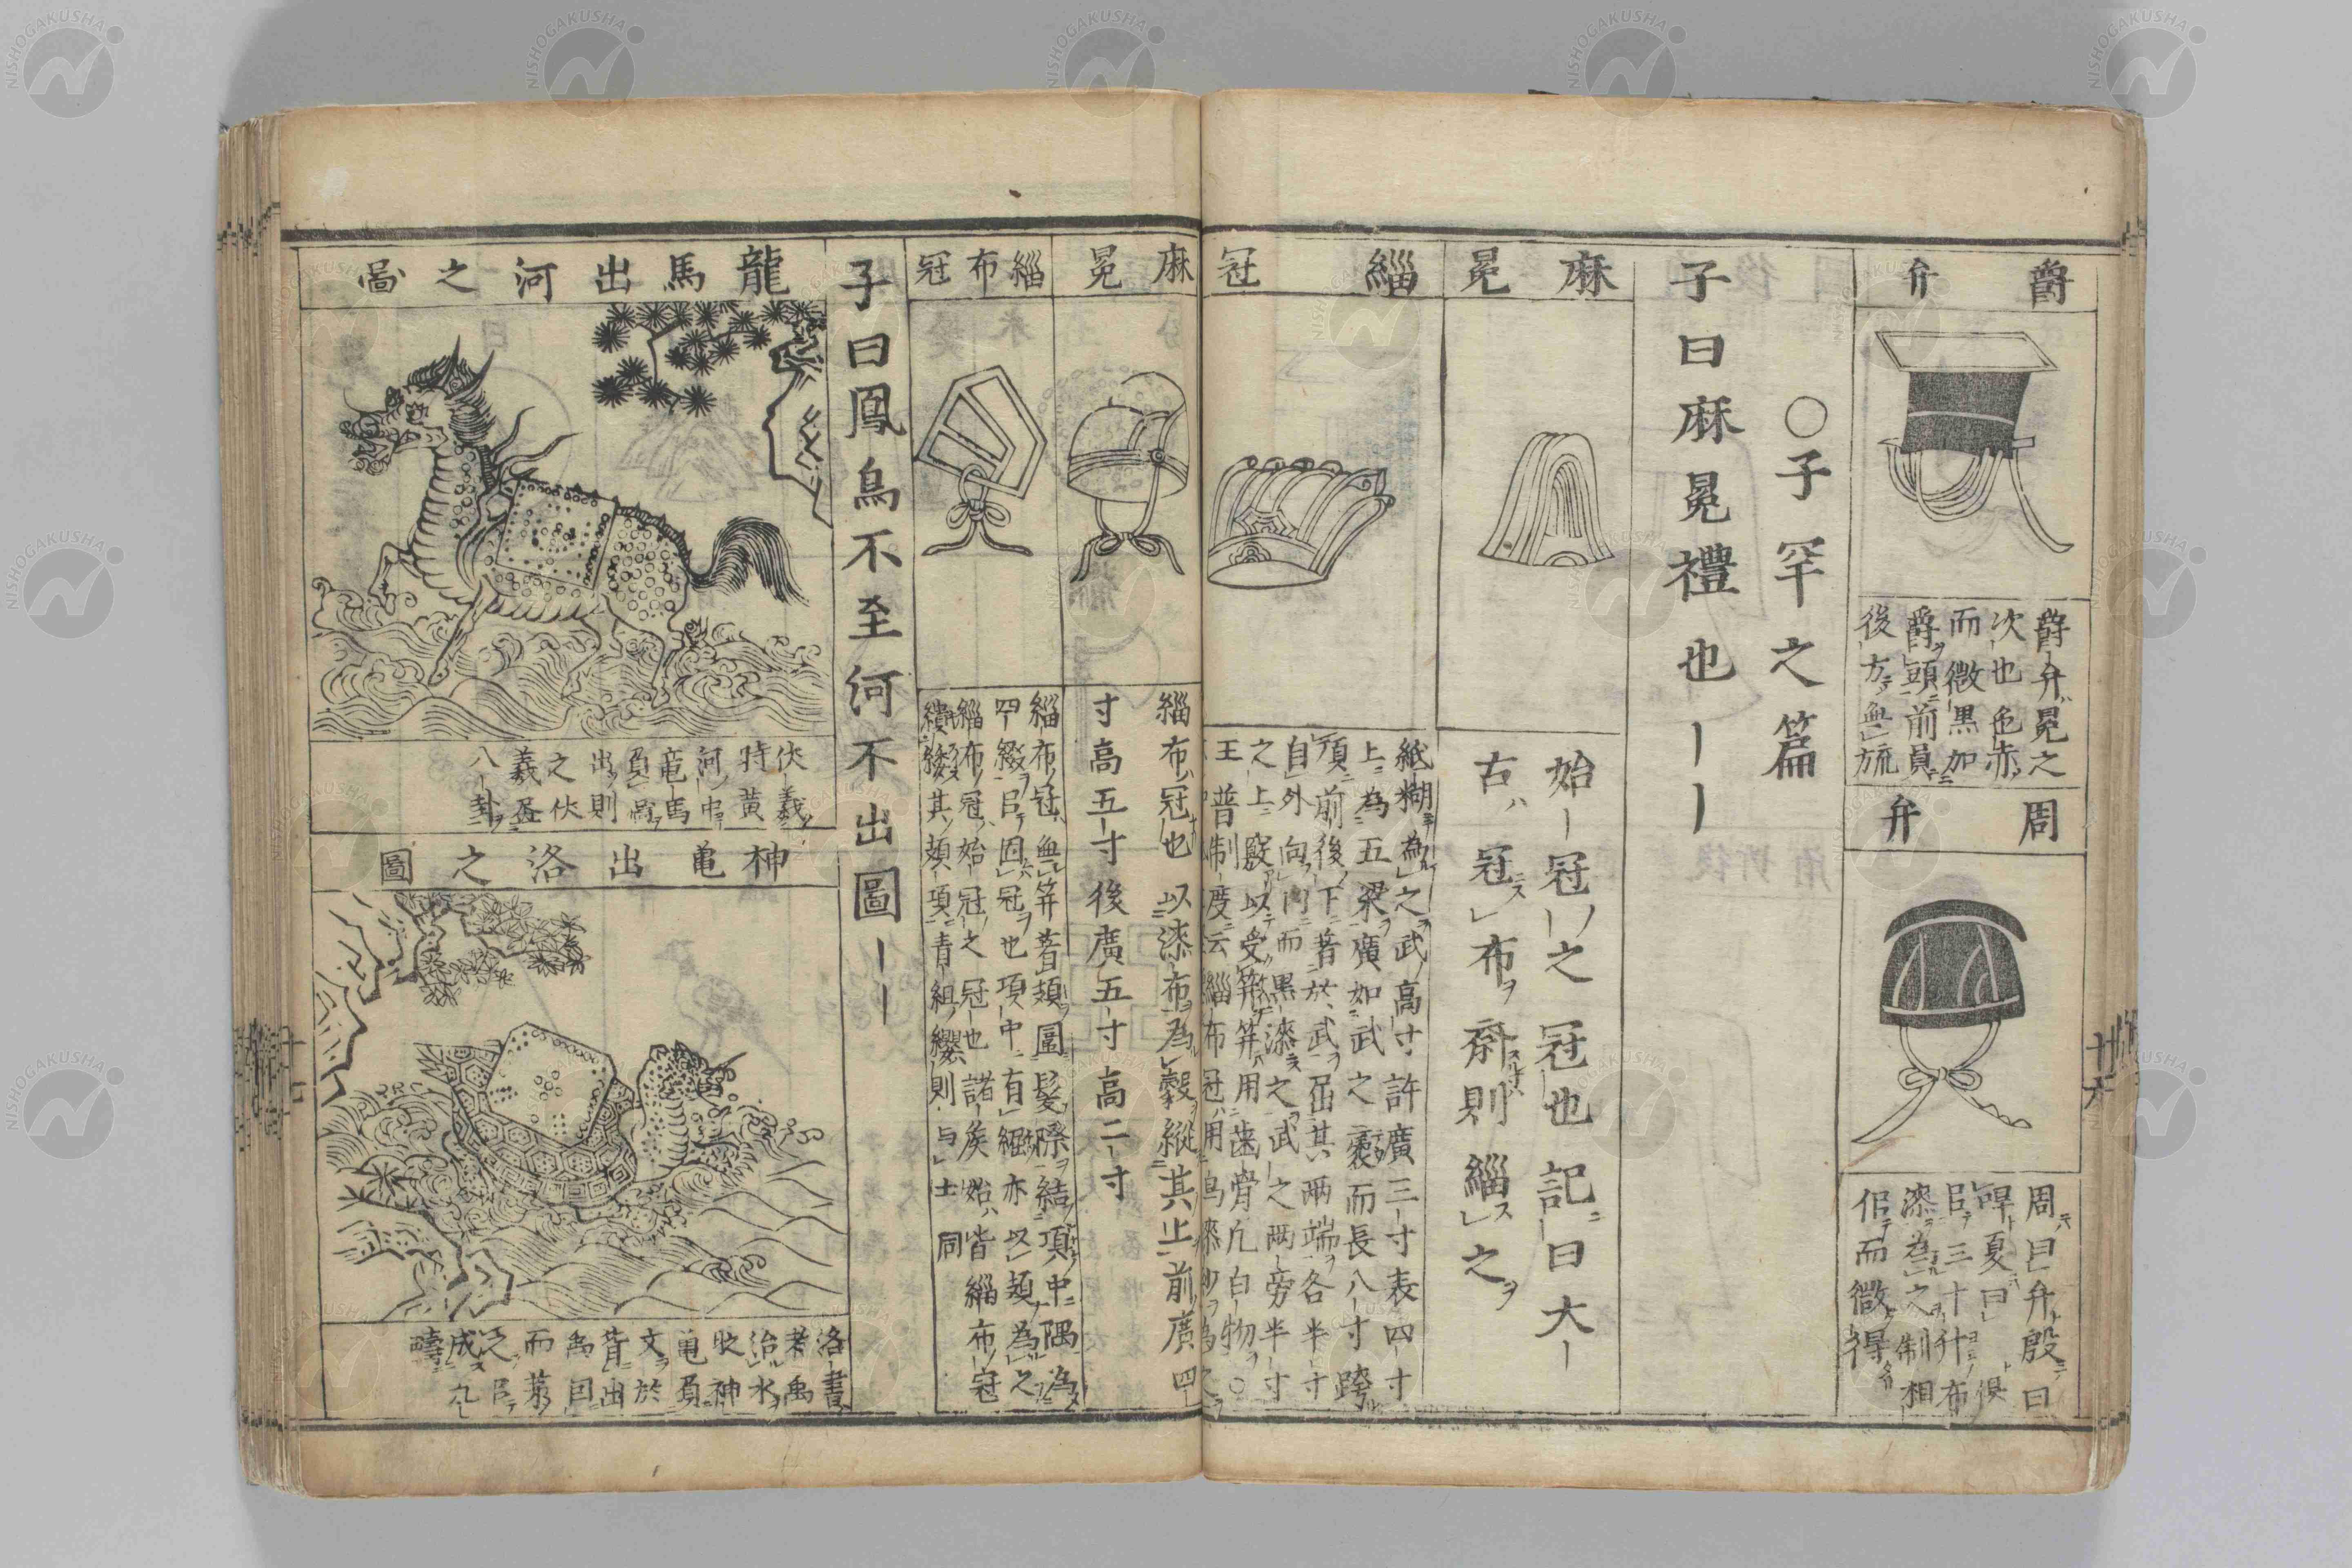 爵弁
爵弁冕之
次也色赤
而微黒加
爵頭前員
後方無旒
周弁
周曰弁殷曰
哻夏曰
㠯三十升布
漆為之制相
佀而微
廿六
○子罕之篇
子曰麻冕禮也〡〡
麻冕
始冠之冠也記曰大
古冠布齊則緇之
緇冠
紙糊為之武高寸許廣三寸表四寸
上為五梁廣如武之袤而長八寸跨
頂前後下著於武屈其兩端各半寸
自外向内而黒漆之武之兩旁半寸
之上竅以受笄笄用齒骨凡白物
麻冕
緇布冠也以漆布為殼縱其上前廣四
寸高五寸後廣五寸高二寸
緇布冠
緇布冠無笄著頍圍髮際結項中隅為
四綴㠯固冠也項中有䋿亦以頍為之
緇布冠始冠之冠也諸矦始皆緇布冠
繢緌其頍項青組纓則与士同
子曰鳳鳥不至河不出圖〡〡
龍馬出河之啚
伏羲
時黄
河中
竜馬
負啚
出則
之伏
羲画
八卦
神亀出洛之圖
洛書
者禹
治水
時神
亀負
文於
背出
禹因
而第
之㠯
成九
疇